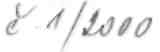 č 1/2000